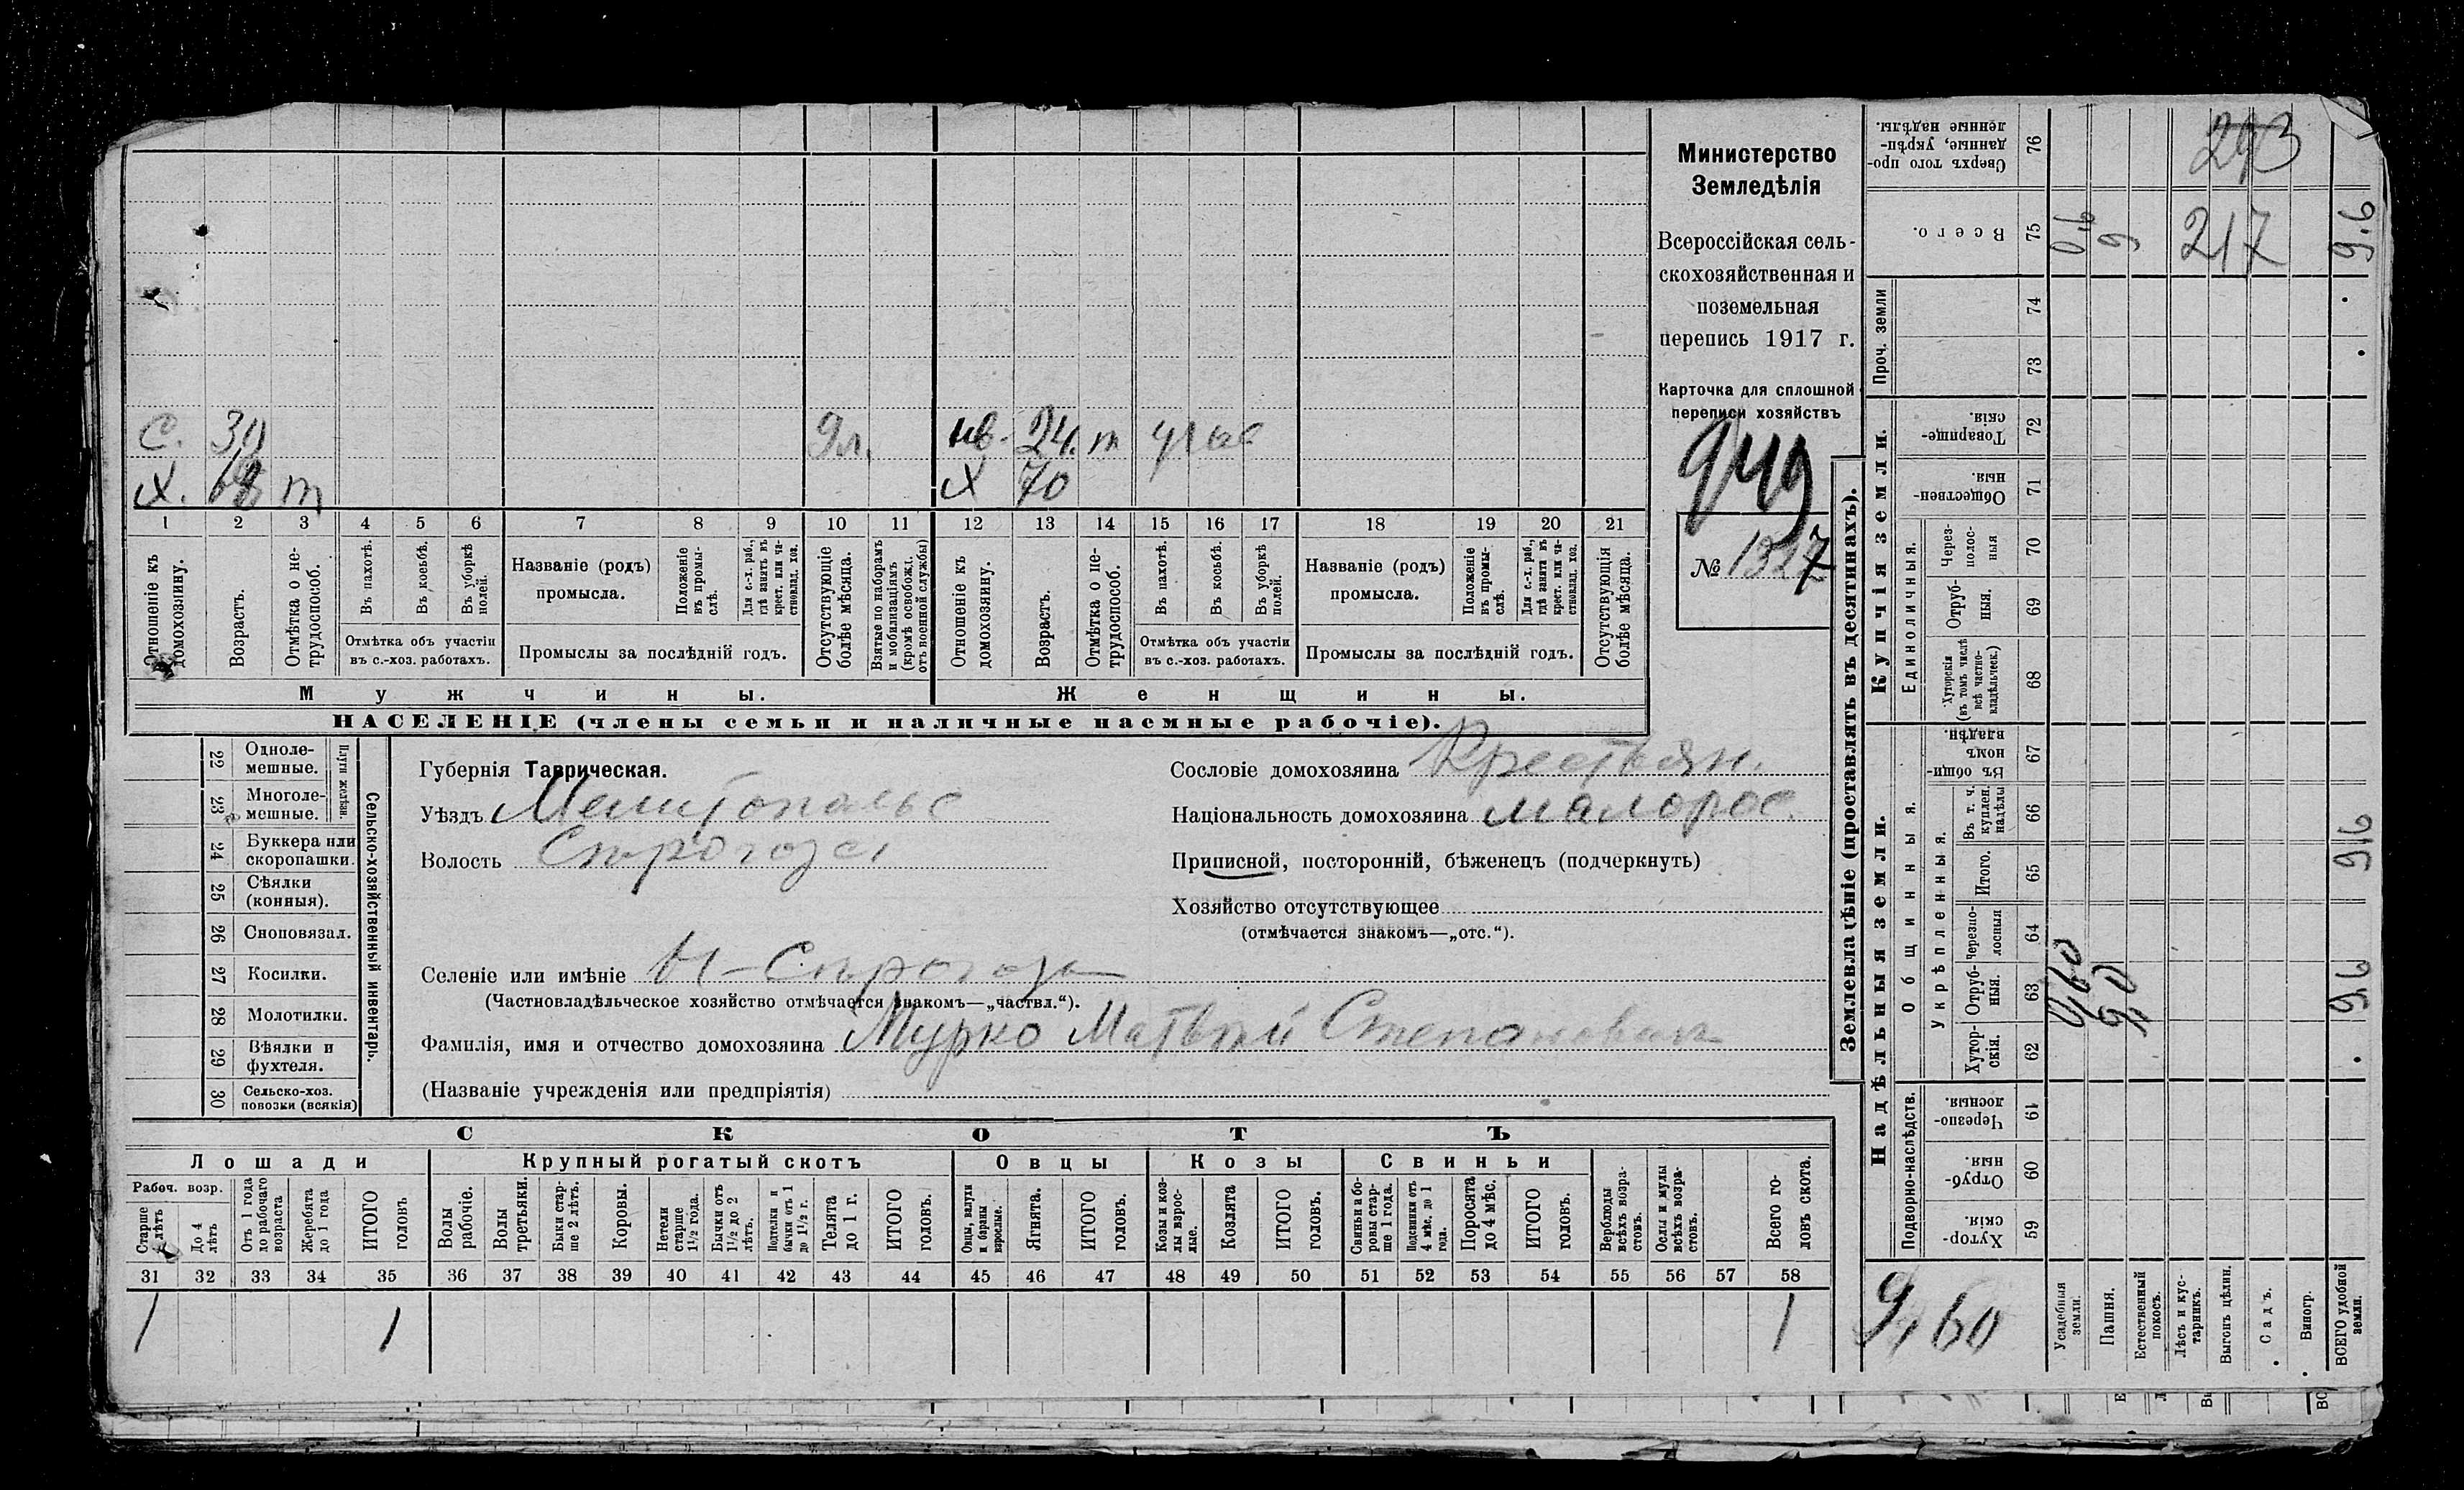 С. 30 9л. нев. 24. т участ
Х. 68 т Х 70
1 2 3 4 5 6 7 8 9 10 11 12 13 14 15 16 17 18 19 20 21
Отношеніе къ домохозяину.
Возрастъ.
Отмѣтка о нетрудоспособ.
Въ пахотѣ.
Въ косьбѣ.
Въ уборкѣ полей.
Отмѣтка объ участіи
въ с.-хоз. работахъ.
Названіе (родъ)
промысла.
Положеніе въ промыслѣ.
Для с.-х. раб., гдѣ занятъ въ крест. или частновлад. хоз.
Промыслы за послѣдній годъ.
Отсутствующіе болѣе мѣсяца.
Взятые по наборамъ и мобилизаціямъ (кромѣ освобожд. отъ военной службы)
Отношеніе къ домохозяину.
Возрастъ.
Отмѣтка о нетрудоспособ.
Въ пахотѣ.
Въ косьбѣ.
Въ уборкѣ полей.
Отмѣтка объ участіи
въ с.-хоз. работахъ.
Названіе (родъ)
промысла.
Положеніе въ промыслѣ.
Для с.-х. раб., гдѣ занята въ крест. или частновлад. хоз.
Промыслы за послѣдній годъ.
Отсутствующія болѣе мѣсяца.
Мужчины. Женщины.
НАСЕЛЕНІЕ (члены семьи и наличные наемные рабочіе).
Министерство
Земледѣлія
Всероссійская сель-
скохозяйственная и
поземельная
перепись 1917 г.
Карточка для сплошной
переписи хозяйствъ
949
№ 1327
Сельско-хозяйственный инвентарь.
Плуги желѣзн.
22 Одноле-
мешные.
23 Многоле-
мешные.
24 Буккера или
скоропашки.
25 Сѣялки
(конныя).
26 Сноповязал.
27 Косилки.
28 Молотилки.
29 Вѣялки и
фухтеля.
30 Сельско-хоз.
повозки (всякія)
Губернія Таврическая.
Уѣздъ Мелитопольс
Волость Строгозы
Селеніе или имѣніе Н-Строгозы
(Частновладѣльческое хозяйство отмѣчается знакомъ—„частвл.“).
Фамилія, имя и отчество домохозяина Мурко Матвѣй Степановичъ
(Названіе учрежденія или предпріятія)
Сословіе домохозяина Крестьян.
Національность домохозяина малорос.
Приписной, посторонній, бѣженецъ (подчеркнуть)
Хозяйство отсутствующее
(отмѣчается знакомъ—„отс.“).
СКОТЪ
Лошади Крупный рогатый скотъ Овцы Козы Свиньи
Рабоч. возр.
Старше 4 лѣтъ
До 4 лѣтъ
Отъ 1 года до рабочаго возраста
Жеребята до 1 года
ИТОГО головъ
Волы рабочіе.
Волы третьяки.
Быки старше 2 лѣтъ.
Коровы.
Нетели старше 1½ года.
Бычки отъ 1½ до 2 лѣтъ.
Подтелки и бычки отъ 1 до 1½ г.
Телята до 1 г.
ИТОГО головъ.
Овцы, валухи и бараны взрослые.
Ягнята.
ИТОГО головъ.
Козы и козлы взрослые.
Козлята
ИТОГО головъ.
Свиньи и боровы старше 1 года.
Подсвинки отъ 4 мѣс. до 1 года.
Поросята до 4 мѣс.
ИТОГО головъ.
Верблюды всѣхъ возрастовъ.
Ослы и мулы всѣхъ возрастовъ.
Всего головъ скота.
31 32 33 34 35 36 37 38 39 40 41 42 43 44 45 46 47 48 49 50 51 52 53 54 55 56 57 58
1 1 1
Землевладѣніе (проставлять въ десятинахъ).
Надѣльныя земли. Купчія земли. Проч. земли
Подворно-наслѣдств.
Общинныя.
Укрѣпленныя.
Единоличныя.
59 Хуторскія.
60 Отрубныя.
61 Черезполосныя.
62 Хуторскія.
63 Отрубныя.
64 Черезполосныя
65 Итого.
66 Въ т. ч. куплен. надѣлы
67 Въ общинномъ владѣн.
68 Хуторскія (въ томъ числѣ всѣ частновладѣльческ.)
69 Отрубныя.
70 Черезполосныя
71 Общественныя.
72 Товарищескія.
73
74
75 Всего.
76 Сверхъ того проданные, укрѣпленные надѣлы.
Усадебныя земли. 0,60 0,6
Пашня. 9,0 9
Естественный покосъ.
Лѣсъ и кустарникъ.
Выгонъ цѣлин.
Садъ.
Виногр.
ВСЕГО удобной земли. 9.6 9.6 9.6
9,60
217